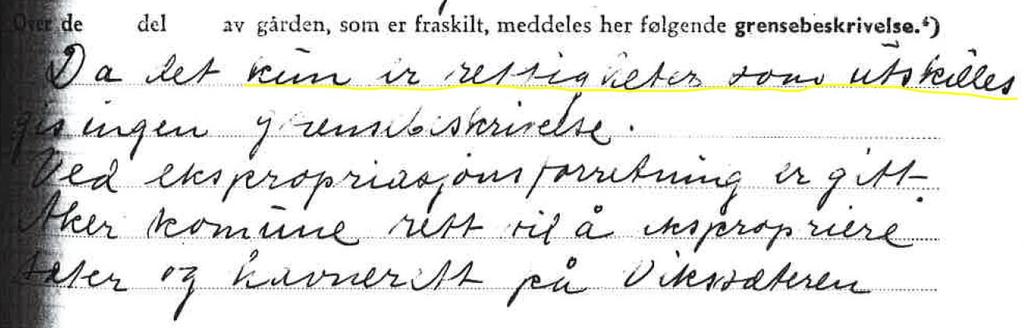 Over de del av gården, som er fraskilt, meddeles her følgende grensebeskrivelse.⁴)
Da det kun er rettigheter som utskilles
gis ingen grensebeskrivelse.
Ved ekspropriasjonsforretning er gitt
Aker komune rett til å ekspropriere
sæter og havnerett på Vikssæteren